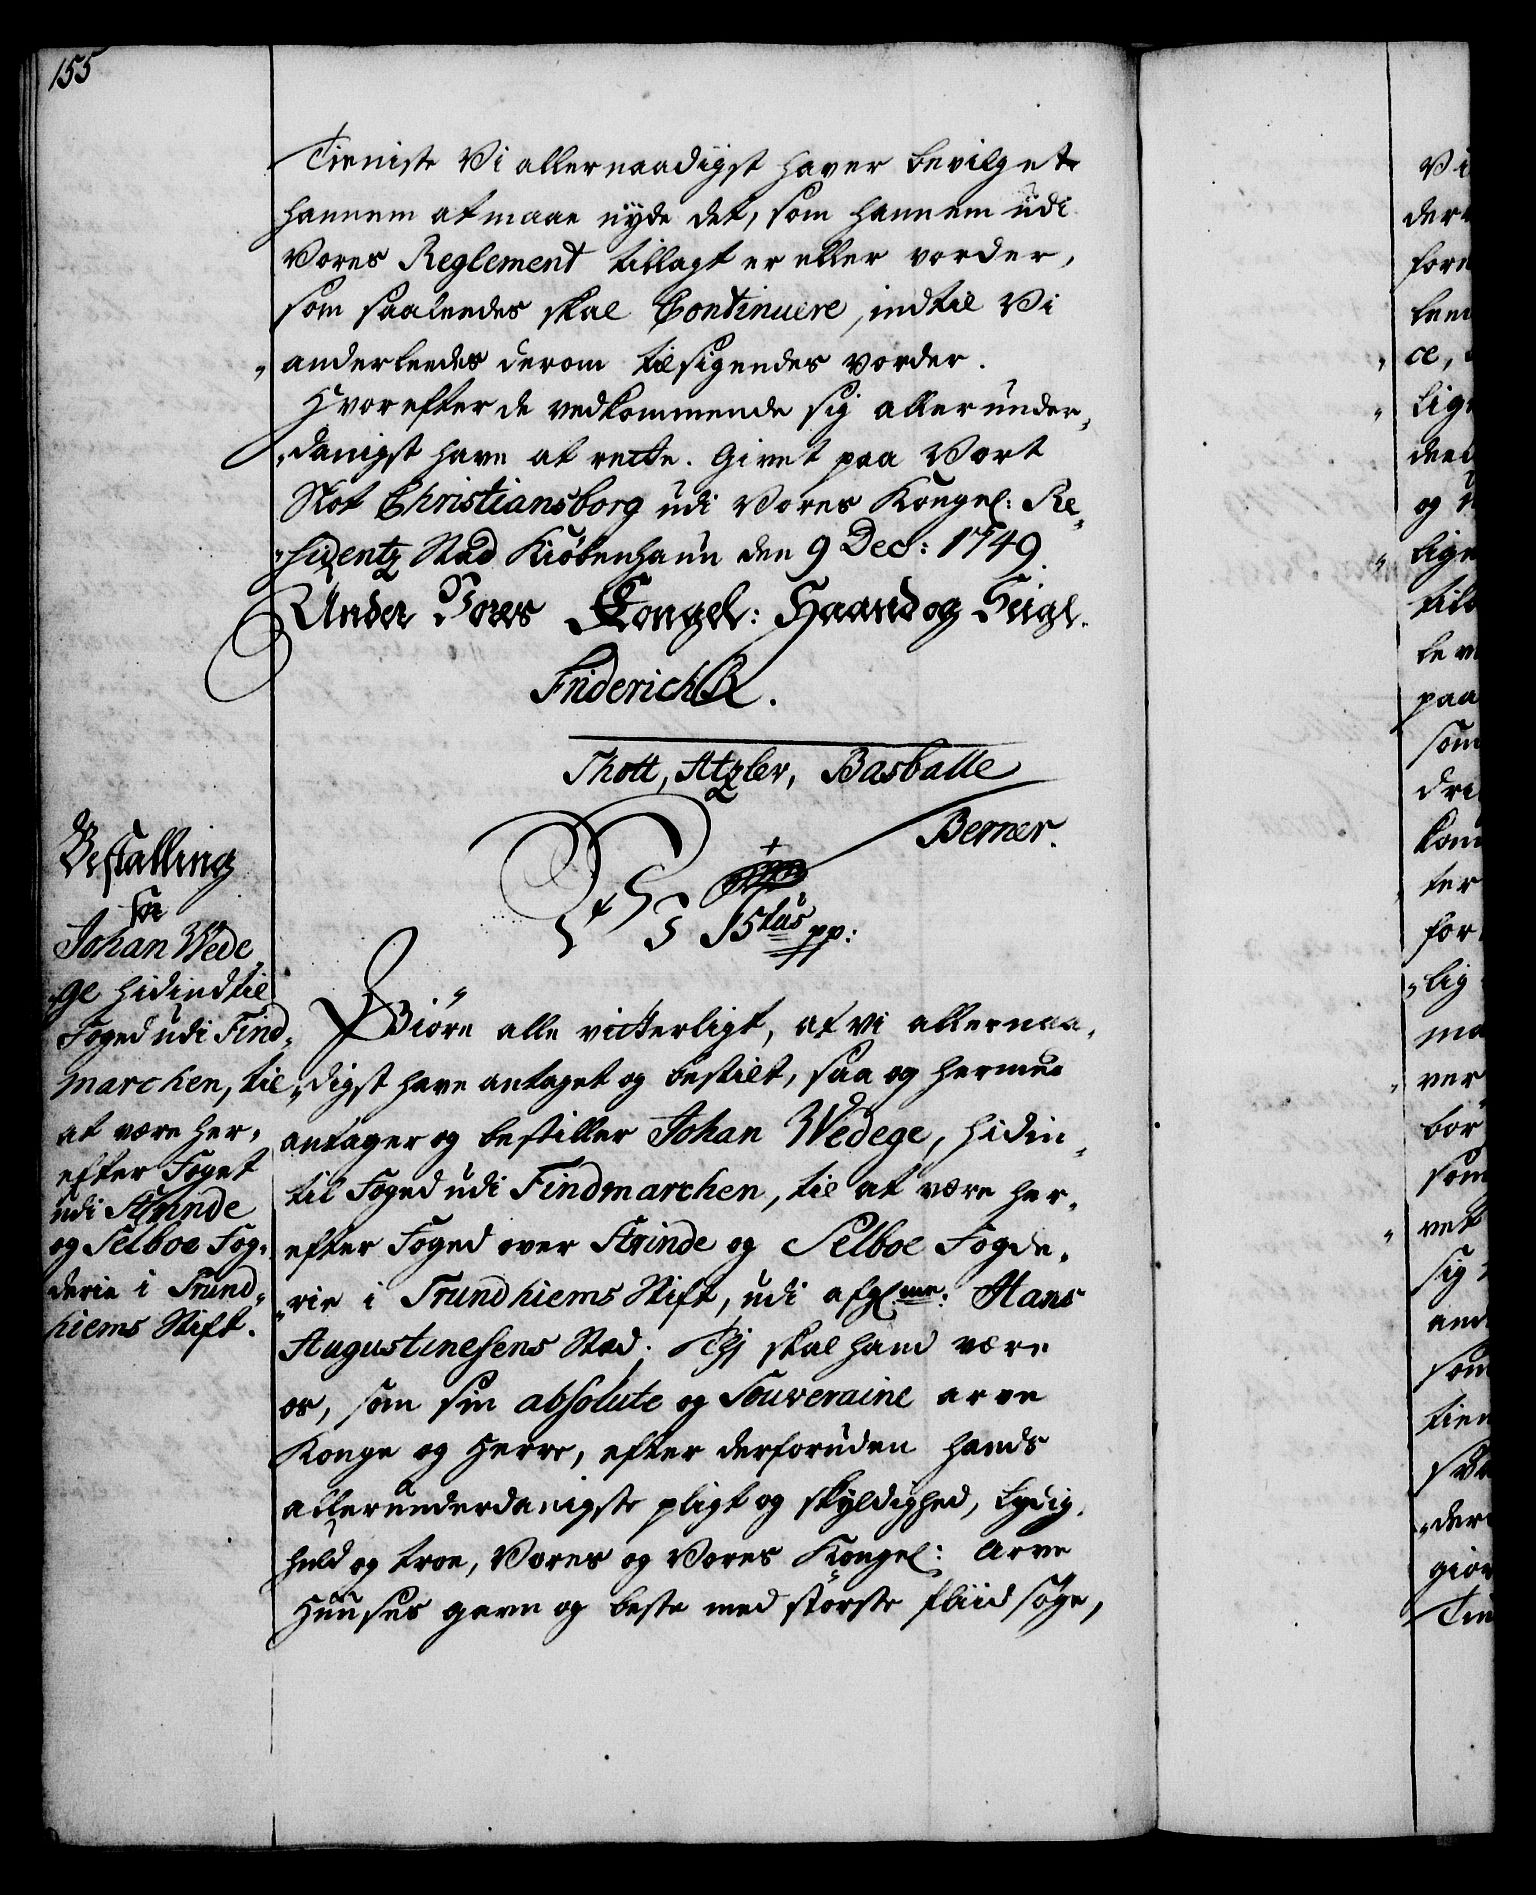 155
Tieniste Vi allernaadigst haver bevilget
hannem at maae nyde det, som hannem udi
Vores Reglement tillagt er eller vorder,
som saaleedes skal Continuere, indtil Vi
anderleedes derom tilsigendes vorder.
Hvorefter de vedkommende sig allerunder„
„danigst have at rette. Givet paa Vort
Slot Christiansborg udi Vores Kongel: Re„
„sidentz Stad Kiöbenhaun den 9 Dec: 1749.
Under Vores Kongel: Haand og Seigl.
Friderich R.
Thott, Atzlev, Basballe
Berner.
Bestalling
for
Johan Wede„
„ge hidindtil
Foged udi Find„
marchen, til
at være her„
efter Foget
udi Strinde
og Selboe Fog„
derie i Trund„
hiems Stift.
F 5 15tus pp:
Giöre alle vitterligt, at vi allernaa„
„digst have antaget og bestilt, saa og hermed
antager og bestiller Johan Wedege, hidin„
til Foged udi Findmarchen, til at være her„
efter Foged over Strinde og Selboe Fogde„
„rie i Trundhiems Stift, udi afgl. Hans
Augustinesens Sted; Thj skal hand være
os, som sin absolute og Souveraine arve
Konge og Herre, efter derforuden hands
allerunderdanigste pligt og skyldighed, lydig,
huld og troe, Vores og Vores Kongel: Arve
Huuses gavn og beste med störste fliid söge,